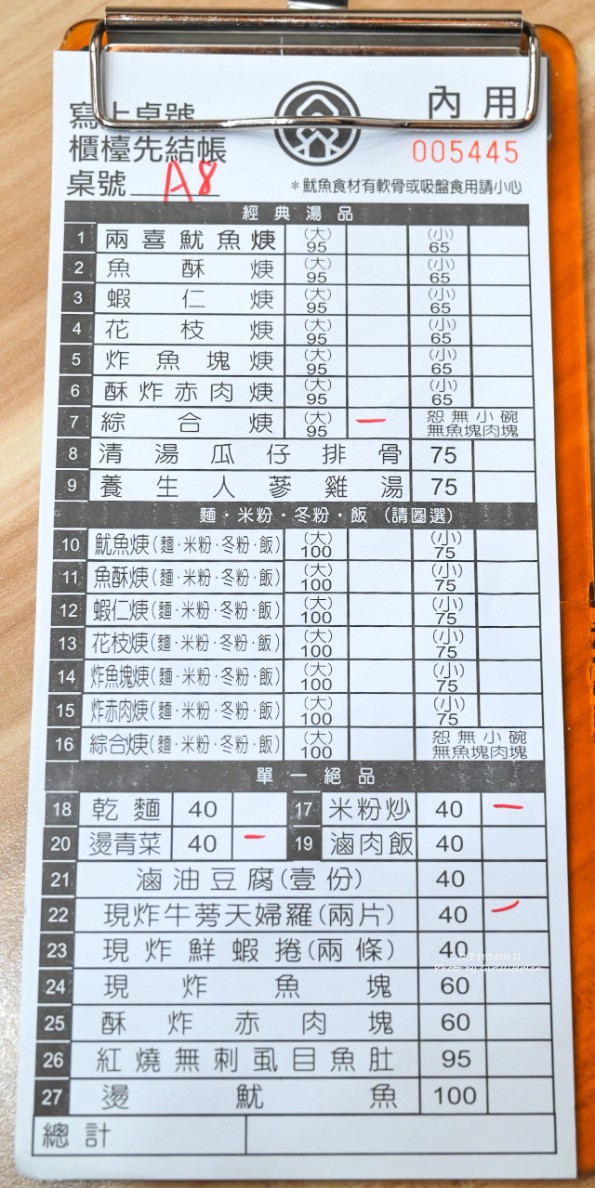 寫上桌號
內用
櫃檯先結帳
005445
桌號 A8
*魷魚食材有軟骨或吸盤食用請小心
經典湯品
1 兩喜魷魚焿 (大) 95 (小) 65
2 魚酥焿 (大) 95 (小) 65
3 蝦仁焿 (大) 95 (小) 65
4 花枝焿 (大) 95 (小) 65
5 炸魚塊焿 (大) 95 (小) 65
6 酥炸赤肉焿 (大) 95 (小) 65
7 綜合焿 (大) 95 一 恕無小碗 無魚塊肉塊
8 清湯瓜仔排骨 75
9 養生人蔘雞湯 75
麵·米粉·冬粉·飯 (請圈選)
10 魷魚焿(麵·米粉·冬粉·飯) (大) 100 (小) 75
11 魚酥焿(麵·米粉·冬粉·飯) (大) 100 (小) 75
12 蝦仁焿(麵·米粉·冬粉·飯) (大) 100 (小) 75
13 花枝焿(麵·米粉·冬粉·飯) (大) 100 (小) 75
14 炸魚塊焿(麵·米粉·冬粉·飯) (大) 100 (小) 75
15 炸赤肉焿(麵·米粉·冬粉·飯) (大) 100 (小) 75
16 綜合焿(麵·米粉·冬粉·飯) (大) 100 恕無小碗 無魚塊肉塊
單一絕品
18 乾麵 40 17 米粉炒 40 一
20 燙青菜 40 一 19 滷肉飯 40
21 滷油豆腐(壹份) 40
22 現炸牛蒡天婦羅(兩片) 40 一
23 現炸鮮蝦捲(兩條) 40
24 現炸魚塊 60
25 酥炸赤肉塊 60
26 紅燒無刺虱目魚肚 95
27 燙魷魚 100
總計